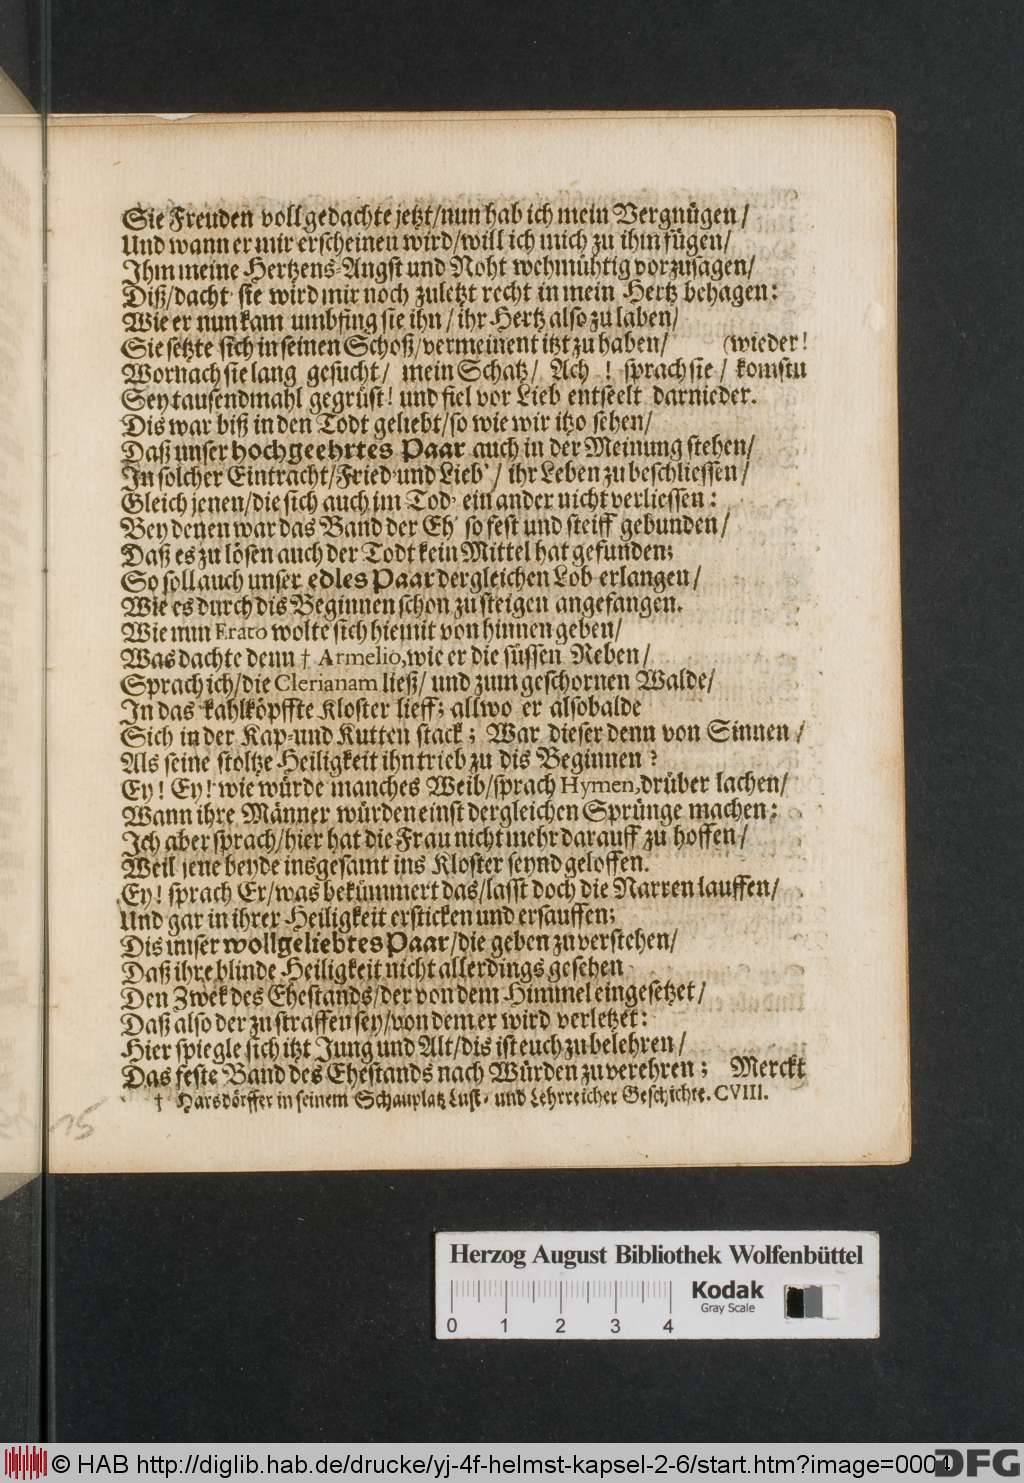 Sie Freuden voll gedachte jetzt/nun hab ich mein Vergnügen/
Und wann er mir erscheinen wird/will ich mich zu ihm fügen/
Ihm meine Hertzens-Angst und Noht wehmühtig vorzusagen/
Diß/dacht' sie wird mir noch zuletzt recht in mein Hertz behagen:
Wie er nun kam umbfing sie ihn/ihr Hertz also zu laben/
Sie setzte sich in seinen Schoß/vermeinent itzt zu haben/ (wieder!
Wornach sie lang gesucht/ mein Schatz/ Ach ! sprach sie/ komstu
Sey tausendmahl gegrüst! und fiel vor Lieb entseelt darnieder.
Dis war biß in den Todt geliebt/so wie wir itzo sehen/
Daß unser hochgeehrtes Paar auch in der Meinung stehen/
In solcher Eintracht/Fried-und Lieb'/ ihr Leben zu beschliessen/
Gleich jenen/die sich auch im Tod' ein ander nicht verliessen:
Bey denen war das Band der Eh' so fest und steiff gebunden/
Daß es zu lösen auch der Todt kein Mittel hat gefunden;
So soll auch unser edles Paar dergleichen Lob erlangen/
Wie es durch dis Beginnen schon zu steigen angefangen.
Wie nun Erato wolte sich hiemit von hinnen geben/
Was dachte denn † Armelio, wie er die süssen Reben/
Sprach ich/die Clerianam ließ/ und zum geschornen Walde/
In das kahlköpffte Kloster lieff; allwo er alsobalde
Sich in der Kap-und Kutten stack; War dieser denn von Sinnen/
Als seine stoltze Heiligkeit ihn trieb zu dis Beginnen?
Ey! Ey! wie würde manches Weib/sprach Hymen, drüber lachen/
Wann ihre Männer würden einst dergleichen Sprünge machen:
Ich aber sprach/hier hat die Frau nicht mehr darauff zu hoffen/
Weil jene beyde insgesamt ins Kloster seynd geloffen.
Ey! sprach Er/was bekümmert das/lasst doch die Narren lauffen/
Und gar in ihrer Heiligkeit ersticken und ersauffen;
Dis unser wollgeliebtes Paar/die geben zu verstehen/
Daß ihre blinde Heiligkeit nicht allerdings gesehen
Den Zwek des Ehestands/der von dem Himmel eingesetzet/
Daß also der zu straffen sey/von dem er wird verletzet:
Hier spiegle sich itzt Jung und Alt/dis ist euch zu belehren/
Das feste Band des Ehestands nach Würden zu verehren; Merckt
† Harsdörffer in seinem Schauplatz Lust- und Lehrreicher Geschichte. CVIII.
15
Herzog August Bibliothek Wolfenbüttel
Kodak
Gray Scale
0 1 2 3 4
© HAB http://diglib.hab.de/drucke/yj-4f-helmst-kapsel-2-6/start.htm?image=0004
DFG